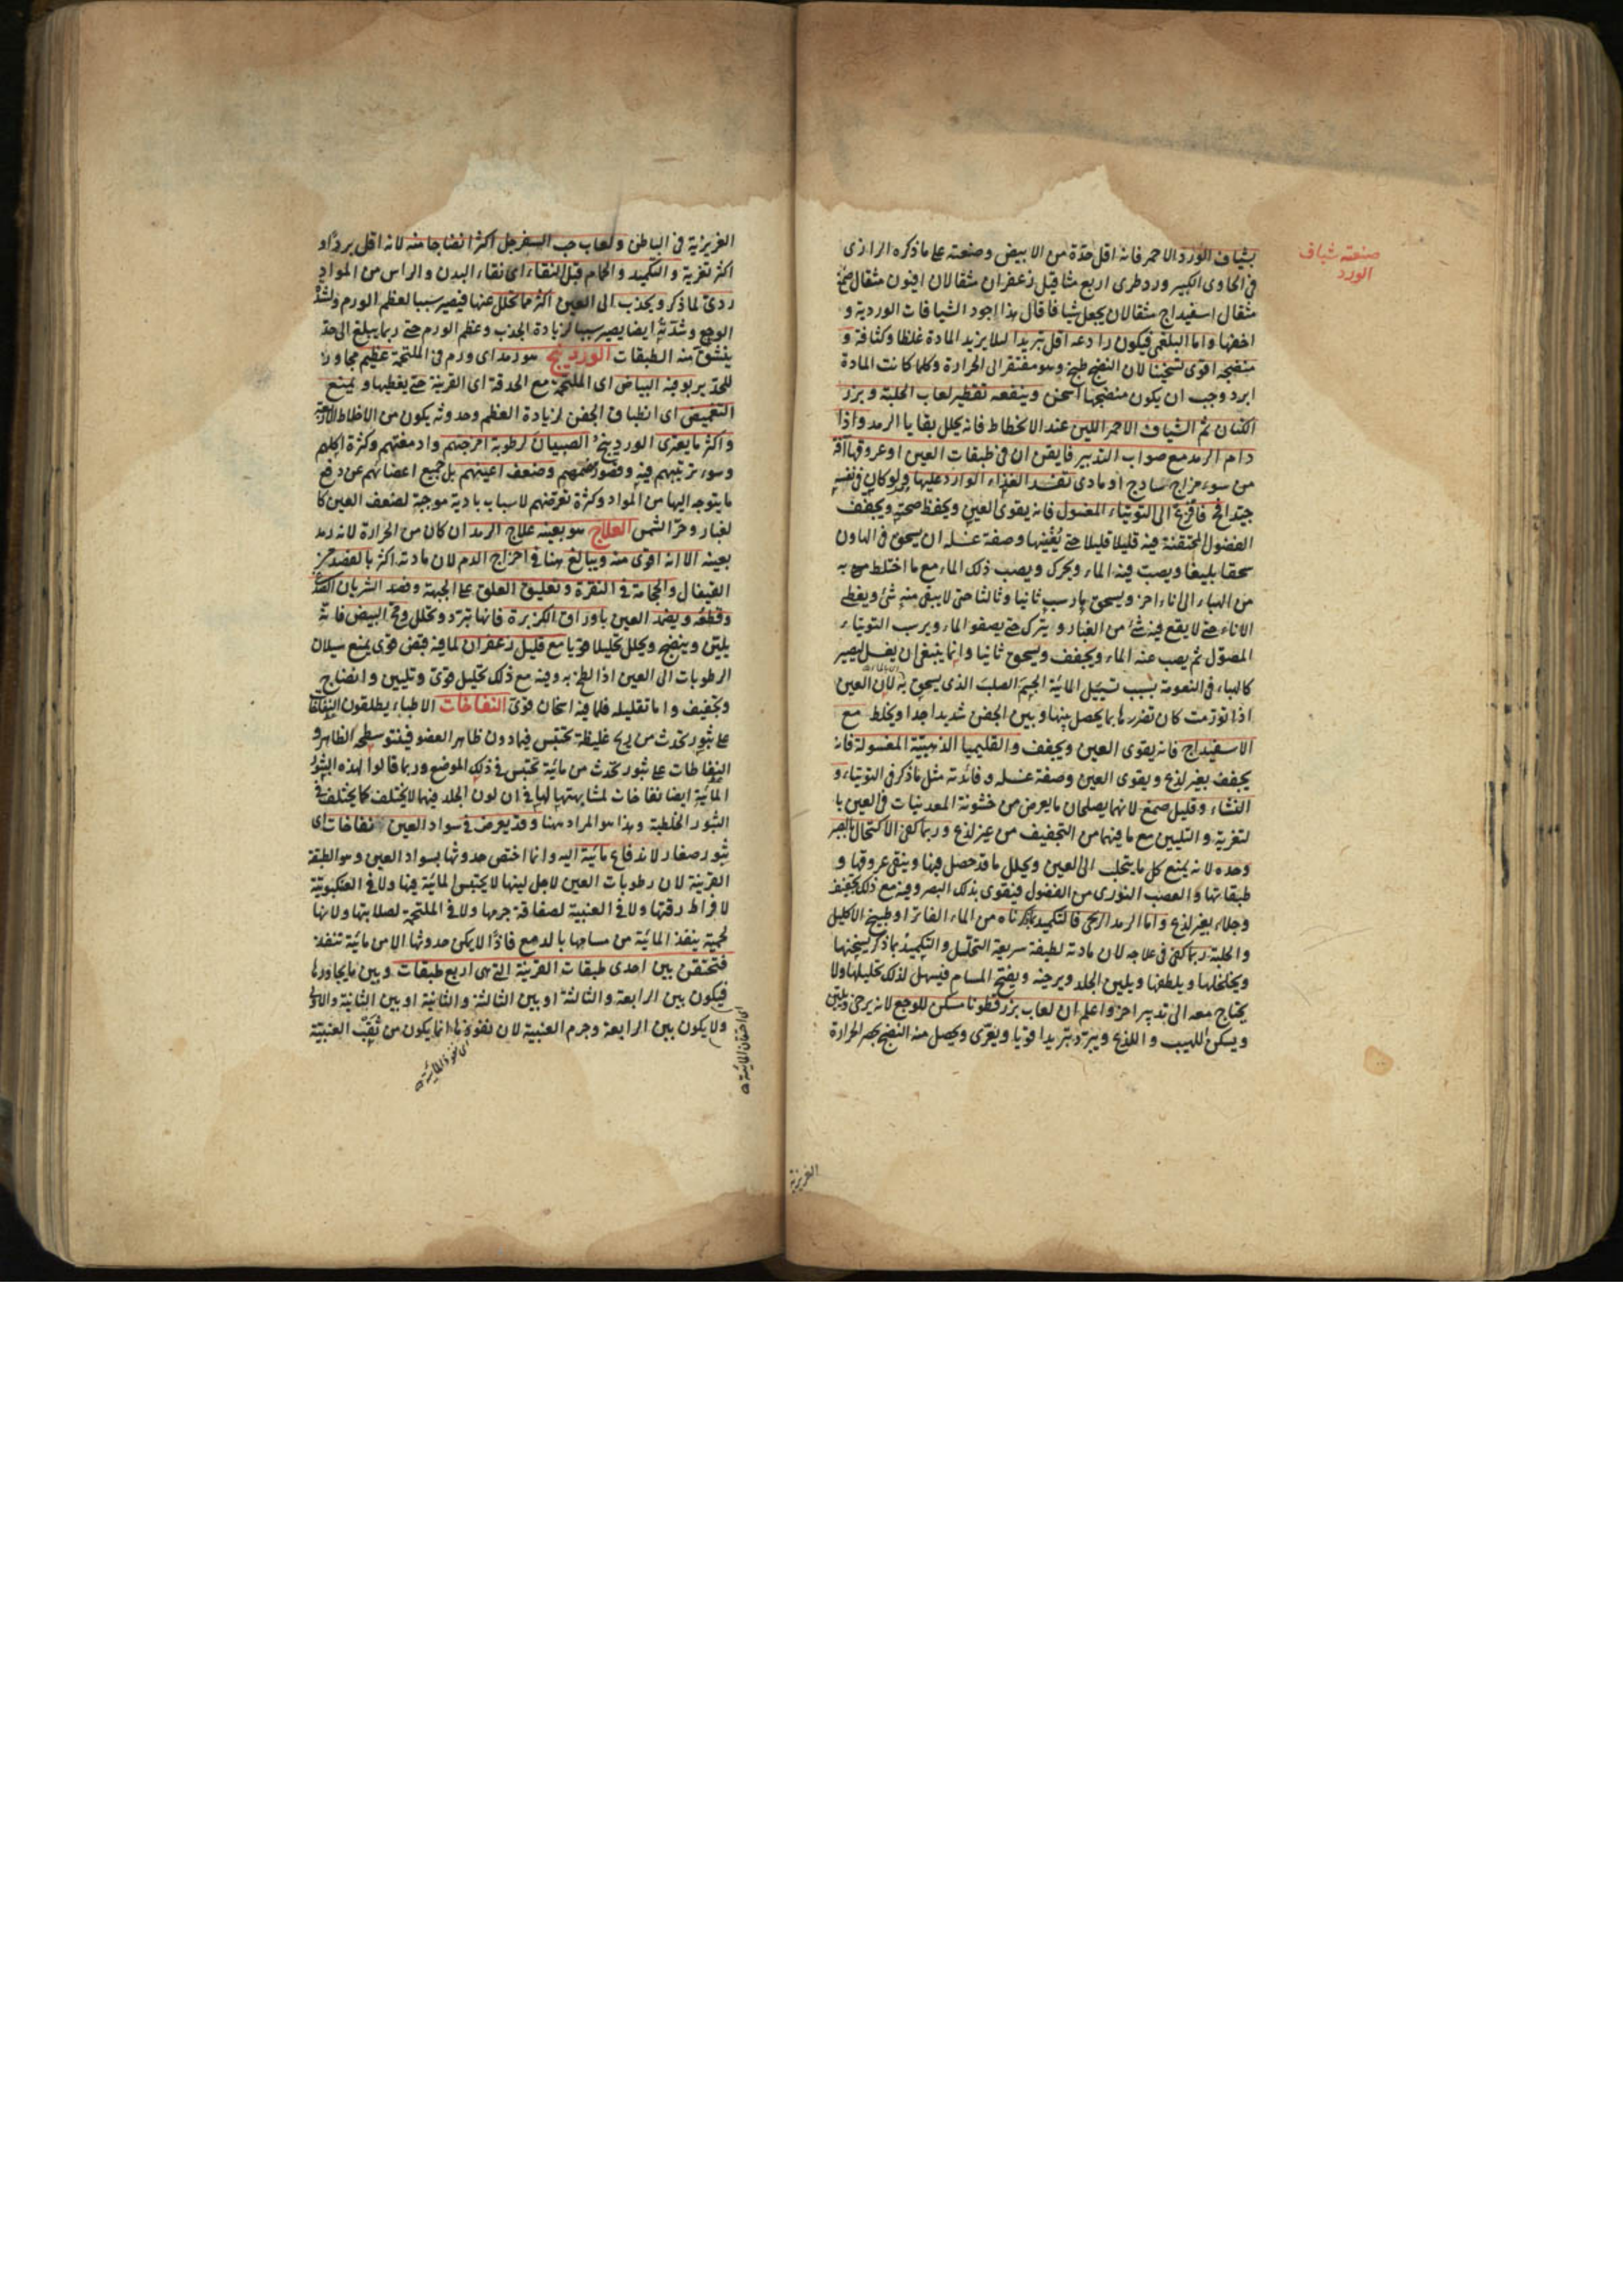 صنعته شياف
الورد
بشياف الورد الاحمر فانه اقل حدة من الابيض وصنعته على ما ذكره الرازى
فى الحاوى الكبير ورد طرى اربع مثاقيل زعفران مثقالان افيون مثقال صمغ
مثقال اسفيداج مثقالان يجعل شيافا قال هذا اجود الشيافات الوردية و
اخفها واما البلغمى فيكون رادعه اقل تبريدا ليلا يزيد المادة غلظا وكثافة و
منضجه اقوى تسخينا لان النضج طبخ وهو مفتقر الى الحرارة وكلما كانت المادة
ابرد وجب ان يكون منضجها اسخن وينفعه تقطير لعاب الحلبة وبزر
الكتان ثم الشياف الاحمر اللين عند الانحطاط فانه يحلل بقايا الرمد واذا
دام الرمد مع صواب التدبير فايقن ان فى طبقات العين او عروقها آفة
من سوء مزاج ساذج او مادى تفسد الغذاء الوارد عليها ولو كان فى نفسه
جيدا فافزع الى التوتياء المغسول فانه يقوى العين ويحفظ صحته ويجفف
الفضول المحتقنة فيه قليلا قليلا حتى يفنيها وصفة غسله ان يسحق فى الهاون
سحقا بليغا ويصب فيه الماء ويحرك ويصب ذلك الماء مع ما اختلط به
من الهباء الى اناء اخر ويسحق ما رسب ثانيا وثالثا حتى لا يبقى منه شئ ويغطى
الاناء حتى لا يقع فيه شئ من الغبار ويترك حتى يصفو الماء ويرسب التوتياء
المصول ثم يصب عنه الماء ويجفف ويسحق ثانيا وانما ينبغى ان يغسل ليصير
كالهباء فى النعومة بسبب تسييل المائية الجسم الصلب الذى يسحق به لان العين
اذا تورمت كان تضررها بما يحصل بينها وبين الجفن شديدا جدا ويخلط مع
الاسفيداج فانه يقوى العين ويجفف والقليميا الذهبية المغسولة فانه
يجفف بغير لذع ويقوى العين وصفة غسله وفائدته مثل ما ذكر فى التوتياء و
النشاء وقليل صمغ لانهما يصلحان ما يعرض من خشونة المعدنيات فى العين با
لتغرية والتليين مع ما فيهما من التجفيف من غير لذع وربما كفى الاكتحال بالصبر
وحده لانه يمنع كل ما يتحلب الى العين ويحلل ما قد حصل فيها وينقى عروقها و
طبقاتها والعصب النورى من الفضول فيتقوى بذلك البصر وفيه مع ذلك تجفيف
وجلاء بغير لذع واما الرمد الريحى فالتكميد بما ذكرناه من الماء الفاتر او طبيخ الاكليل
والحلبة ربما كفى فى علاجه لان مادته لطيفة سريعة التحلل والتكميد بما ذكر يسخنها
ويخلخلها ويلطفها ويلين الجلد ويرخيه ويفتح المسام فيسهل لذلك تحليلها ولا
يحتاج معه الى تدبير اخر واعلم ان لعاب بزر قطونا مسكن للوجع لانه يرخى ويلين
ويسكن اللهيب واللذع ويبرد تبريدا قويا ويغرى ويحصل منه النضج بحصر الحرارة
الغريزية
الغريزية فى الباطن ولعاب حب السفرجل اكثر انضاجا منه لانه اقل بردا و
اكثر تغرية والتكميد والحمام قبل النقاء اى نقاء البدن والراس من المواد
ردئ لما ذكر ويجذب الى العين اكثر مما تحلل عنها فيصير سببا لعظم الورم ولشدة
الوجع وشدته ايضا يصير سببا لزيادة الجذب وعظم الورم حتى ربما يبلغ الى حد
ينشق منه الطبقات الوردينج هو رمد اى ورم فى الملتحمة عظيم مجاوز
للحد يربو فيه البياض اى الملتحمة مع الحدقة اى القرنية حتى يغطيها ويمنع
التغميض اى انطباق الجفن لزيادة العظم وحدوثه يكون من الاخلاط الاربعة
واكثر ما يعترى الوردينج الصبيان لرطوبة امزجتهم وادمغتهم وكثرة اكلهم
وسوء ترتيبهم فيه وقصور هضمهم وضعف اعينهم بل جميع اعضائهم عن دفع
ما يتوجه اليها من المواد وكثرة تعرضهم لاسباب بادية موجبة لضعف العين كا
لغبار وحر الشمس العلاج هو بعينه علاج الرمد ان كان من الحرارة لانه رمد
بعينه الا انه اقوى منه ويبالغ هنا فى اخراج الدم لان مادته اكثر بالفصد من
القيفال والحجامة فى النقرة وتعليق العلق على الجبهة وفصد الشريان الصدغى
وقطعه ويضمد العين باوراق الكزبرة فانها تبرد وتحلل ومح البيض فانه
يلين وينضج ويحلل تحليلا قويا مع قليل زعفران لما فيه قبض قوى يمنع سيلان
الرطوبات الى العين اذا لطخ به وفيه مع ذلك تحليل قوى وتليين وانضاج
وتجفيف واما تقليله فلما فيه اسخان قوى النفاخات الاطباء يطلقون النفاخات
على بثور تحدث من ريح غليظة تحتبس فيما دون ظاهر العضو فينتو سطحه الظاهر و
النفاطات على بثور تحدث من مائية تحتبس فى ذلك الموضع وربما قالوا لهذه البثور
المائية ايضا نفاخات لمشابهتها لها فى ان لون الجلد فيهما لا يختلف كما يختلف فى
البثور الخلطية وهذا هو المراد ههنا وقد يعرض فى سواد العين نفاخات اى
بثور صغار لاندفاع مائية اليه وانما اختص حدوثها بسواد العين وهو الطبقة
القرنية لان رطوبات العين لاجل لينها لا يحتبس المائية فيها ولا فى العنكبوتية
لافراط رقتها ولا فى العنبية لصفاقة جرمها ولا فى الملتحمة لصلابتها ولانها
لحمية ينفذ المائية من مسامها بالدمع فاذا لا يمكن حدوثها الا من مائية تنفذ
فتحتقن بين احدى طبقات القرنية التى هى اربع طبقات وبين ما يجاورها
فيكون بين الرابعة والثالثة او بين الثالثة والثانية او بين الثانية والاولى
ولا يكون بين الرابعة وجرم العنبية لان نفوذها انما يكون من ثقب العنبية
اى احتقان المائية
اى نفوذ المائية